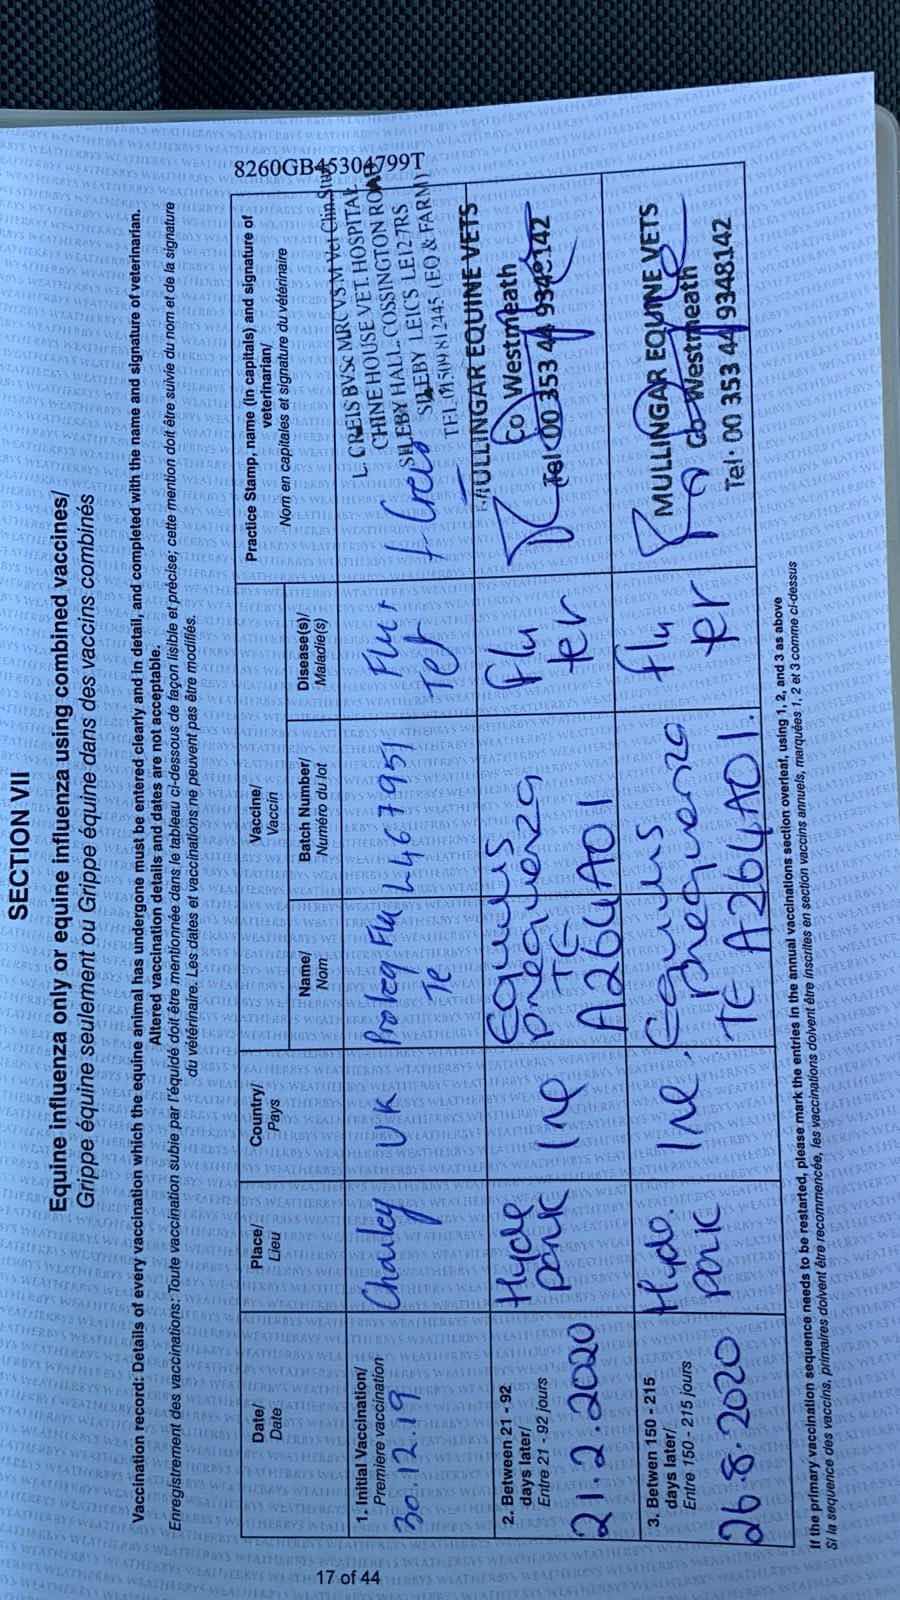 8260GB45304799T
SECTION VII
Equine influenza only or equine influenza using combined vaccines/
Grippe équine seulement ou Grippe équine dans des vaccins combinés
Vaccination record: Details of every vaccination which the equine animal has undergone must be entered clearly and in detail, and completed with the name and signature of veterinarian.
Altered vaccination details and dates are not acceptable.
Enregistrement des vaccinations: Toute vaccination subie par l'équidé doit être mentionnée dans le tableau ci-dessous de façon lisible et précise; cette mention doit être suivie du nom et de la signature
du vétérinaire. Les dates et vaccinations ne peuvent pas être modifiés.
Date/
Date
Place/
Lieu
Country/
Pays
Vaccine/
Vaccin
Name/
Nom
Batch Number/
Numéro du lot
Disease(s)/
Maladie(s)
Practice Stamp, name (in capitals) and signature of
veterinarian/
Nom en capitales et signature du vétérinaire
1. Initial Vaccination/
Première vaccination
30.12.19
Charley
UK
Proteq Flu
Te
L467951
Flu +
Tet
L. CREIS BVSc MRCVS M Vet Clin Stud
CHINE HOUSE VET. HOSPITAL
SILEBY HALL. COSSINGTON ROAD
SILEBY LEICS LE12 7RS
TEL. 01509 812445 (EQ & FARM)
L Creis
2. Between 21 - 92
days later/
Entre 21 - 92 jours
21.2.2020
Hyde
park
Ire
Equius
prequenza
TE
A264A01
flu
ter
MULLINGAR EQUINE VETS
Co Westmeath
Tel 00 353 44 9348142
3. Between 150 - 215
days later/
Entre 150 - 215 jours
26.8.2020
Hyde.
park
Ire.
Equius
prequenza
TE A264A01.
flu
ter
MULLINGAR EQUINE VETS
Co Westmeath
Tel: 00 353 44 9348142
If the primary vaccination sequence needs to be restarted, please mark the entries in the annual vaccinations section overleaf, using 1, 2, and 3 as above
Si la sequence des vaccins, primaires doivent être recommencée, les vaccinations doivent être inscrites en section vaccins annuels, marquées 1, 2 et 3 comme ci-dessus
17 of 44